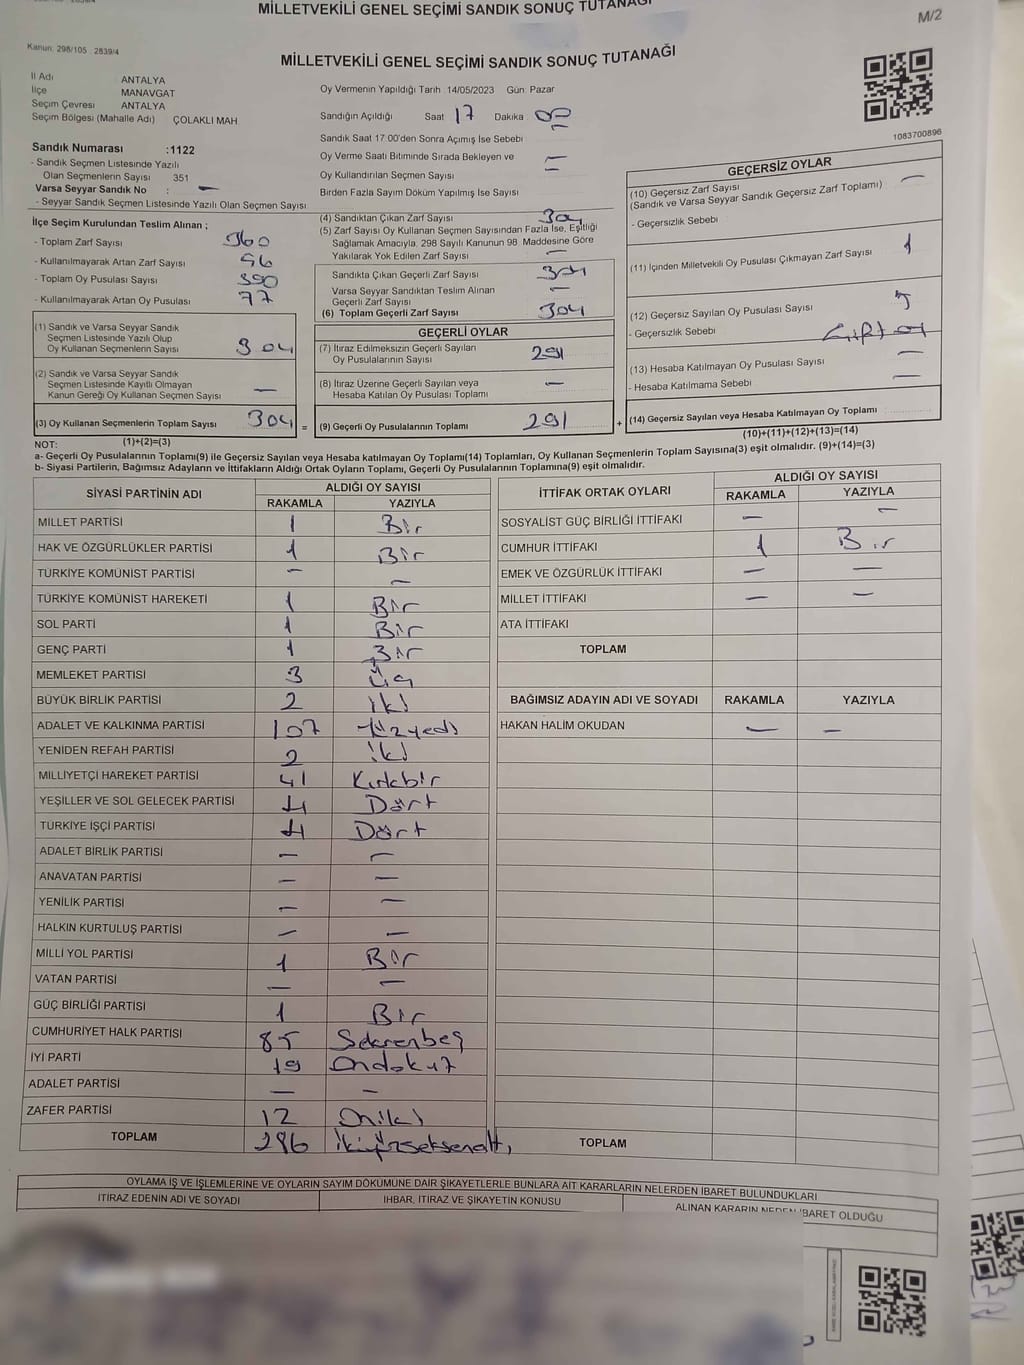 MİLLETVEKİLİ GENEL SEÇİMİ SANDIK SONUÇ TUTANAĞI
M/2
Kanun: 298/105 2839/4
MİLLETVEKİLİ GENEL SEÇİMİ SANDIK SONUÇ TUTANAĞI
İl Adı ANTALYA
İlçe MANAVGAT
Seçim Çevresi ANTALYA
Seçim Bölgesi (Mahalle Adı) ÇOLAKLI MAH
Sandık Numarası :1122
- Sandık Seçmen Listesinde Yazılı
Olan Seçmenlerin Sayısı 351
Varsa Seyyar Sandık No : —
- Seyyar Sandık Seçmen Listesinde Yazılı Olan Seçmen Sayısı
İlçe Seçim Kurulundan Teslim Alınan ;
- Toplam Zarf Sayısı 360
- Kullanılmayarak Artan Zarf Sayısı
- Toplam Oy Pusulası Sayısı
- Kullanılmayarak Artan Oy Pusulası 77
(1) Sandık ve Varsa Seyyar Sandık
Seçmen Listesinde Yazılı Olup
Oy Kullanan Seçmenlerin Sayısı 304
(2) Sandık ve Varsa Seyyar Sandık
Seçmen Listesinde Kayıtlı Olmayan
Kanun Gereği Oy Kullanan Seçmen Sayısı —
(3) Oy Kullanan Seçmenlerin Toplam Sayısı 304 =
(1)+(2)=(3)
Oy Vermenin Yapıldığı Tarih 14/05/2023 Gün Pazar
Sandığın Açıldığı Saat 17 Dakika 00
Sandık Saat 17:00'den Sonra Açımış İse Sebebi
Oy Verme Saati Bitiminde Sırada Bekleyen ve —
Oy Kullandırılan Seçmen Sayısı
Birden Fazla Sayım Döküm Yapılmış İse Sayısı
(4) Sandıktan Çıkan Zarf Sayısı 304
(5) Zarf Sayısı Oy Kullanan Seçmen Sayısından Fazla İse, Eşitliği
Sağlamak Amacıyla, 298 Sayılı Kanunun 98. Maddesine Göre
Yakılarak Yok Edilen Zarf Sayısı —
Sandıkta Çıkan Geçerli Zarf Sayısı 304
Varsa Seyyar Sandıktan Teslim Alınan
Geçerli Zarf Sayısı —
(6) Toplam Geçerli Zarf Sayısı 304
GEÇERLİ OYLAR
(7) İtiraz Edilmeksizin Geçerli Sayılan
Oy Pusulalarının Sayısı 291
(8) İtiraz Üzerine Geçerli Sayılan veya
Hesaba Katılan Oy Pusulası Toplamı —
(9) Geçerli Oy Pusulalarının Toplamı 291 +
1083700896
GEÇERSİZ OYLAR
(10) Geçersiz Zarf Sayısı —
(Sandık ve Varsa Seyyar Sandık Geçersiz Zarf Toplamı)
- Geçersizlik Sebebi
(11) İçinden Milletvekili Oy Pusulası Çıkmayan Zarf Sayısı 1
(12) Geçersiz Sayılan Oy Pusulası Sayısı 5
- Geçersizlik Sebebi Çift oy
(13) Hesaba Katılmayan Oy Pusulası Sayısı —
- Hesaba Katılmama Sebebi —
(14) Geçersiz Sayılan veya Hesaba Katılmayan Oy Toplamı
(10)+(11)+(12)+(13)=(14)
NOT:
a- Geçerli Oy Pusulalarının Toplamı(9) ile Geçersiz Sayılan veya Hesaba katılmayan Oy Toplamı(14) Toplamları, Oy Kullanan Seçmenlerin Toplam Sayısına(3) eşit olmalıdır. (9)+(14)=(3)
b- Siyasi Partilerin, Bağımsız Adayların ve İttifakların Aldığı Ortak Oyların Toplamı, Geçerli Oy Pusulalarının Toplamına(9) eşit olmalıdır.
SİYASİ PARTİNİN ADI ALDIĞI OY SAYISI
RAKAMLA YAZIYLA
MİLLET PARTİSİ 1 Bir
HAK VE ÖZGÜRLÜKLER PARTİSİ 1 Bir
TÜRKİYE KOMÜNİST PARTİSİ — —
TÜRKİYE KOMÜNİST HAREKETİ 1 Bir
SOL PARTİ 1 Bir
GENÇ PARTİ 1 Bir
MEMLEKET PARTİSİ 3 Üç
BÜYÜK BİRLİK PARTİSİ 2 İki
ADALET VE KALKINMA PARTİSİ 107 Yüzyedi
YENİDEN REFAH PARTİSİ 2 İki
MİLLİYETÇİ HAREKET PARTİSİ 41 Kırkbir
YEŞİLLER VE SOL GELECEK PARTİSİ 4 Dört
TÜRKİYE İŞÇİ PARTİSİ 4 Dört
ADALET BİRLİK PARTİSİ — —
ANAVATAN PARTİSİ — —
YENİLİK PARTİSİ — —
HALKIN KURTULUŞ PARTİSİ — —
MİLLİ YOL PARTİSİ 1 Bir
VATAN PARTİSİ — —
GÜÇ BİRLİĞİ PARTİSİ 1 Bir
CUMHURİYET HALK PARTİSİ 85 Seksenbeş
İYİ PARTİ 19 Ondokuz
ADALET PARTİSİ — —
ZAFER PARTİSİ 12 Oniki
TOPLAM 286 İkiyüzseksenaltı
İTTİFAK ORTAK OYLARI ALDIĞI OY SAYISI
RAKAMLA YAZIYLA
SOSYALİST GÜÇ BİRLİĞİ İTTİFAKI — —
CUMHUR İTTİFAKI 1 Bir
EMEK VE ÖZGÜRLÜK İTTİFAKI — —
MİLLET İTTİFAKI — —
ATA İTTİFAKI
TOPLAM
BAĞIMSIZ ADAYIN ADI VE SOYADI RAKAMLA YAZIYLA
HAKAN HALİM OKUDAN — —
TOPLAM
OYLAMA İŞ VE İŞLEMLERİNE VE OYLARIN SAYIM DÖKÜMÜNE DAİR ŞİKAYETLERLE BUNLARA AİT KARARLARIN NELERDEN İBARET BULUNDUKLARI
İTİRAZ EDENİN ADI VE SOYADI İHBAR, İTİRAZ VE ŞİKAYETİN KONUSU ALINAN KARARIN NEDEN İBARET OLDUĞU